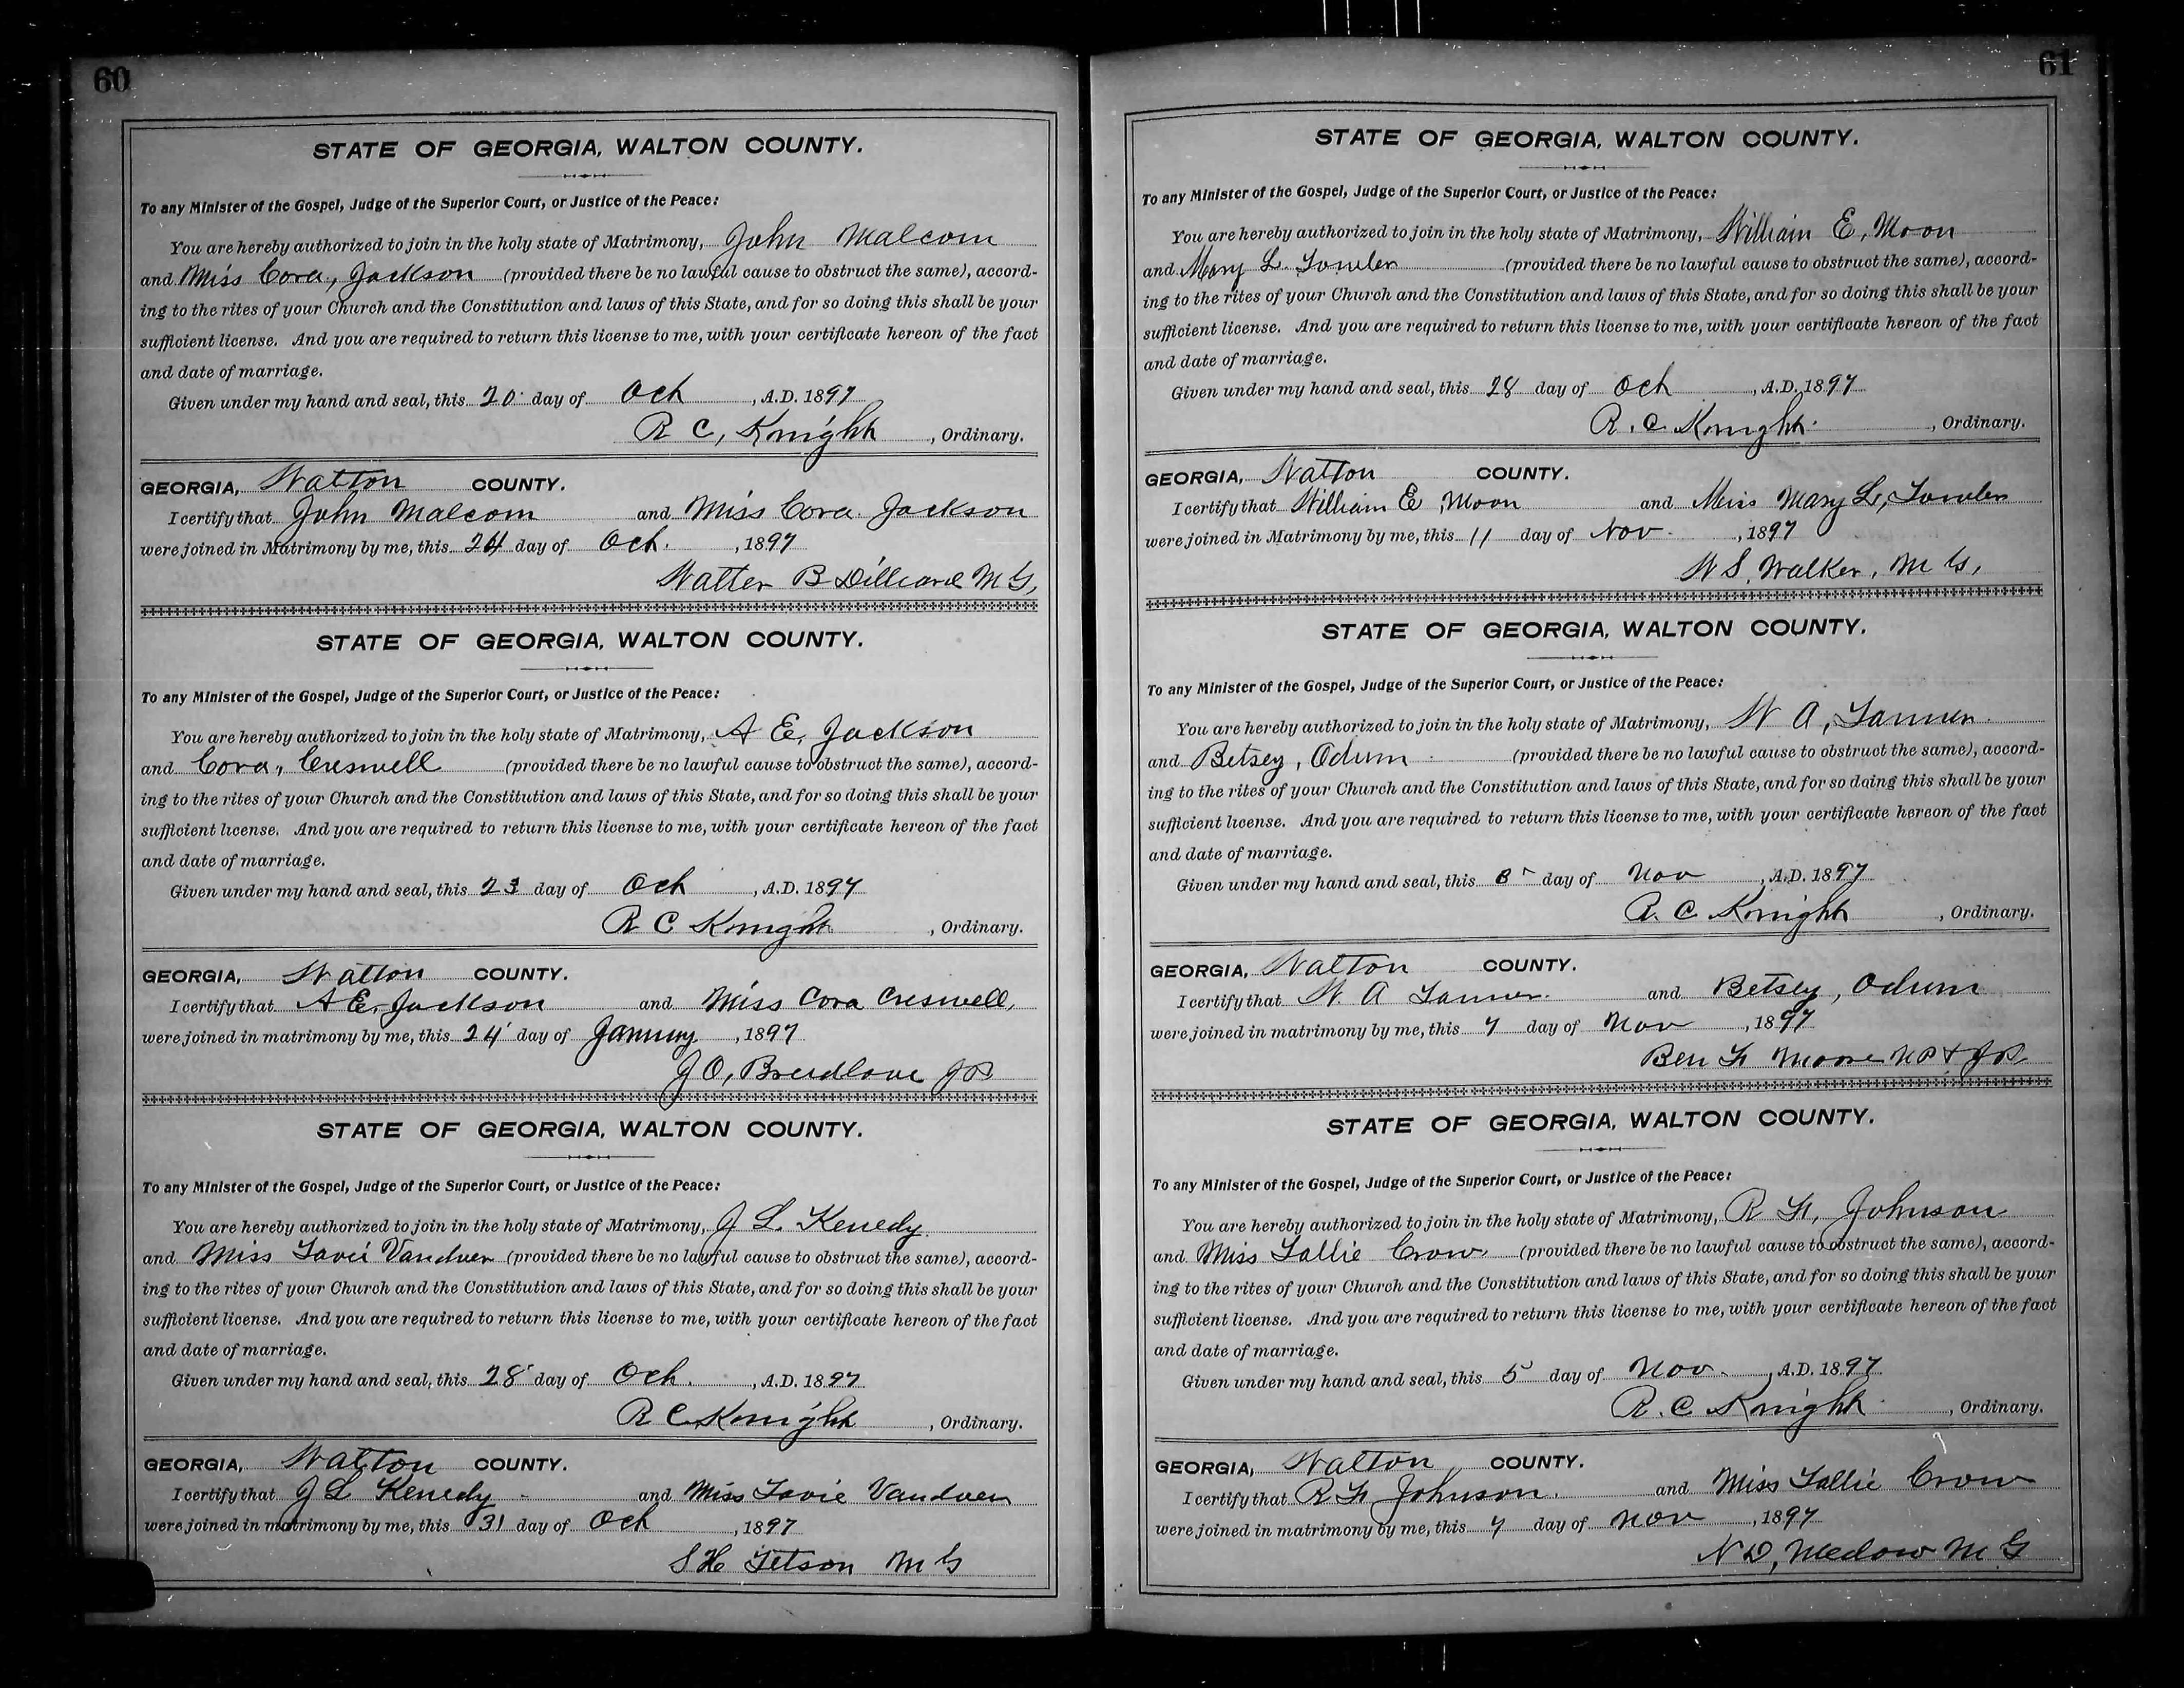 60
STATE OF GEORGIA, WALTON COUNTY.
To any Minister of the Gospel, Judge of the Superior Court, or Justice of the Peace:
You are hereby authorized to join in the holy state of Matrimony, John Malcom
and Miss Cora, Jackson (provided there be no lawful cause to obstruct the same), accord-
ing to the rites of your Church and the Constitution and laws of this State, and for so doing this shall be your
sufficient license. And you are required to return this license to me, with your certificate hereon of the fact
and date of marriage.
Given under my hand and seal, this 20 day of Oct, A.D. 1897
R C, Knight, Ordinary.
GEORGIA, Walton COUNTY.
I certify that John Malcom and Miss Cora Jackson
were joined in Matrimony by me, this 24 day of Oct., 1897
Walter B Dilliard M G,
STATE OF GEORGIA, WALTON COUNTY.
To any Minister of the Gospel, Judge of the Superior Court, or Justice of the Peace:
You are hereby authorized to join in the holy state of Matrimony, A E, Jackson
and Cora, Creswell (provided there be no lawful cause to obstruct the same), accord-
ing to the rites of your Church and the Constitution and laws of this State, and for so doing this shall be your
sufficient license. And you are required to return this license to me, with your certificate hereon of the fact
and date of marriage.
Given under my hand and seal, this 23 day of Oct, A.D. 1897
R C Knight, Ordinary.
GEORGIA, Walton COUNTY.
I certify that A E, Jackson and Miss Cora Creswell,
were joined in matrimony by me, this 24 day of January, 1897
J O, Breedlove JP
STATE OF GEORGIA, WALTON COUNTY.
To any Minister of the Gospel, Judge of the Superior Court, or Justice of the Peace:
You are hereby authorized to join in the holy state of Matrimony, J L. Kenedy
and Miss Tavie Vandver (provided there be no lawful cause to obstruct the same), accord-
ing to the rites of your Church and the Constitution and laws of this State, and for so doing this shall be your
sufficient license. And you are required to return this license to me, with your certificate hereon of the fact
and date of marriage.
Given under my hand and seal, this 28 day of Oct., A.D. 1897
R C Knight, Ordinary.
GEORGIA, Walton COUNTY.
I certify that J L Kenedy and Miss Tavie Vandver
were joined in matrimony by me, this 31 day of Oct, 1897
S H M G
61
STATE OF GEORGIA, WALTON COUNTY.
To any Minister of the Gospel, Judge of the Superior Court, or Justice of the Peace:
You are hereby authorized to join in the holy state of Matrimony, William E, Moon
and Mary L. Towler (provided there be no lawful cause to obstruct the same), accord-
ing to the rites of your Church and the Constitution and laws of this State, and for so doing this shall be your
sufficient license. And you are required to return this license to me, with your certificate hereon of the fact
and date of marriage.
Given under my hand and seal, this 28 day of Oct, A.D. 1897
R. C. Knight, Ordinary.
GEORGIA, Walton COUNTY.
I certify that William E, Moon and Miss Mary L, Towler
were joined in Matrimony by me, this 11 day of Nov., 1897
W S, Walker, M G,
STATE OF GEORGIA, WALTON COUNTY.
To any Minister of the Gospel, Judge of the Superior Court, or Justice of the Peace:
You are hereby authorized to join in the holy state of Matrimony, W A, Tanner
and Betsey, Odum (provided there be no lawful cause to obstruct the same), accord-
ing to the rites of your Church and the Constitution and laws of this State, and for so doing this shall be your
sufficient license. And you are required to return this license to me, with your certificate hereon of the fact
and date of marriage.
Given under my hand and seal, this day of Nov, A.D. 1897
R. C Knight, Ordinary.
GEORGIA, Walton COUNTY.
I certify that W A Tanner and Betsey, Odum
were joined in matrimony by me, this 7 day of Nov, 1897
Ben F Moore N P & J P
STATE OF GEORGIA, WALTON COUNTY.
To any Minister of the Gospel, Judge of the Superior Court, or Justice of the Peace:
You are hereby authorized to join in the holy state of Matrimony, R F, Johnson
and Miss Sallie Crow (provided there be no lawful cause to obstruct the same), accord-
ing to the rites of your Church and the Constitution and laws of this State, and for so doing this shall be your
sufficient license. And you are required to return this license to me, with your certificate hereon of the fact
and date of marriage.
Given under my hand and seal, this 5 day of Nov., A.D. 1897
R. C Knight, Ordinary.
GEORGIA, Walton COUNTY.
I certify that R F Johnson. and Miss Sallie Crow
were joined in matrimony by me, this 7 day of Nov, 1897
N D, Medow M G